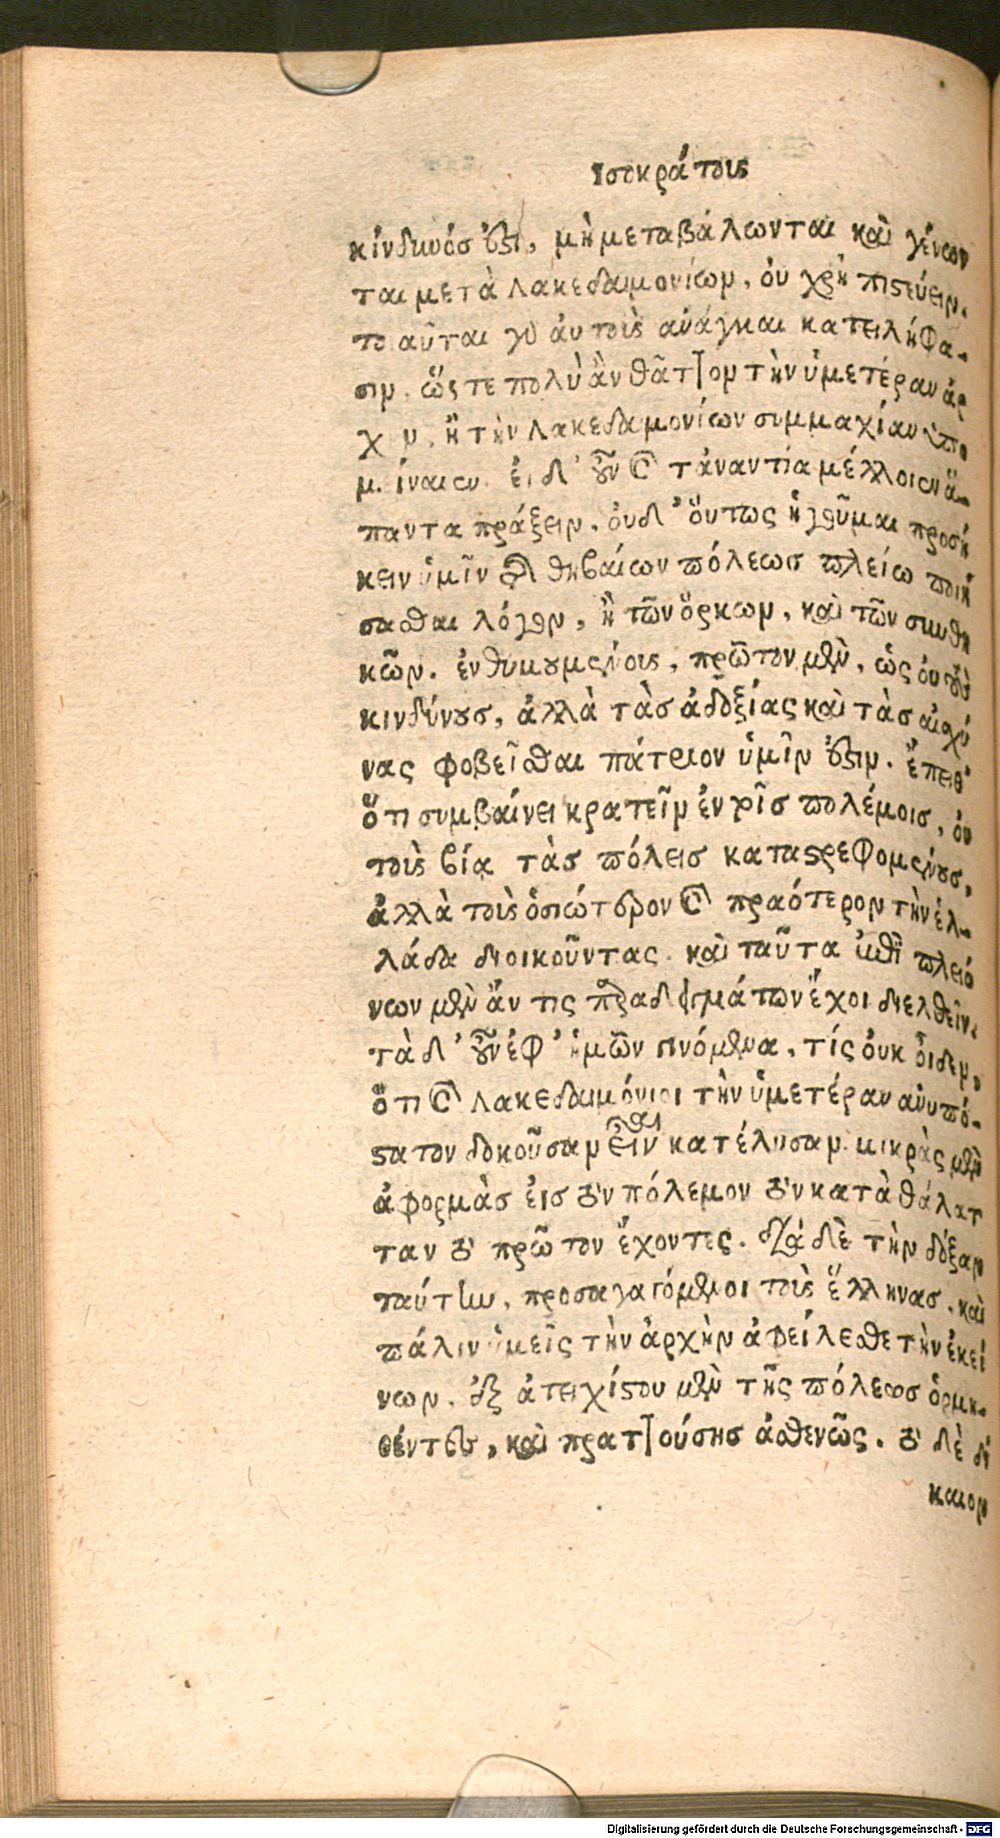 Ισοκράτους
κίνδυνός ἐστι, μὴ μεταβάλωνται καὶ γένων
ται μετὰ Λακεδαιμονίων, οὐ χρὴ πιστεύειν.
τοιαῦται γὸ αὐτοὺς ἀνάγκαι κατειλήφα-
σιν. ὥστε πολὺ ἂν θᾶττον τὴν ὑμετέραν ἀρ
χ ν, ἢ τὴν Λακεδαιμονίων συμμαχίαν ὑπο
μ.ίναιεν. εἰ δ' οὖν καὶ τἀναντία μέλλοιεν ἅ-
παντα πράξειν, οὐδ' οὕτως ἡγοῦμαι προσή
κειν ὑμῖν ὑπὲρ θηβαίων πόλεως πλείω ποιή
σασθαι λόγον, ἢ τῶν ὅρκων, καὶ τῶν συνθη
κῶν. ἐνθυμουμένους, πρῶτον μὲν, ὡς οὐ τοὺς
κινδύνους, ἀλλὰ τὰς ἀδοξίας καὶ τὰς αἰσχύ
νας φοβεῖσθαι πάτριον ὑμῖν ἐστιν. ἔπειθ'
ὅτι συμβαίνει κρατεῖν ἐν τοῖς πολέμοις, οὐ
τοὺς βίᾳ τὰς πόλεις καταστρεφομένους,
ἀλλὰ τοὺς ὁσιώτερον καὶ πραότερον τὴν ἑλ-
λάδα διοικοῦντας. καὶ ταῦτα ἐπὶ πλειό
νων μὲν ἄν τις παραδειγμάτων ἔχοι διελθεῖν.
τὰ δ' οὖν ἐφ' ἡμῶν γινόμενα, τίς οὐκ οἶδεν,
ὅτι καὶ Λακεδαιμόνιοι τὴν ὑμετέραν ἀνυπό-
στατον δοκοῦσαν εἶναι κατέλυσαν. μικρὰς μὲν
ἀφορμὰς εἰς τὸν πόλεμον τὸν κατὰ θάλατ
ταν τὸ πρῶτον ἔχοντες. διὰ δὲ τὴν δόξαν
ταύτην, προσαγαγόμενοι τοὺς ἕλληνας. καὶ
πάλιν ὑμεῖς τὴν ἀρχὴν ἀφείλεσθε τὴν ἐκεί
νων. ἐξ ἀτειχίστου μὲν τῆς πόλεως ὁρμη-
θέντες, καὶ πραττούσης ἀσθενῶς. τὸ δὲ δί
καιον
Digitalisierung gefördert durch die Deutsche Forschungsgemeinschaft - DFG